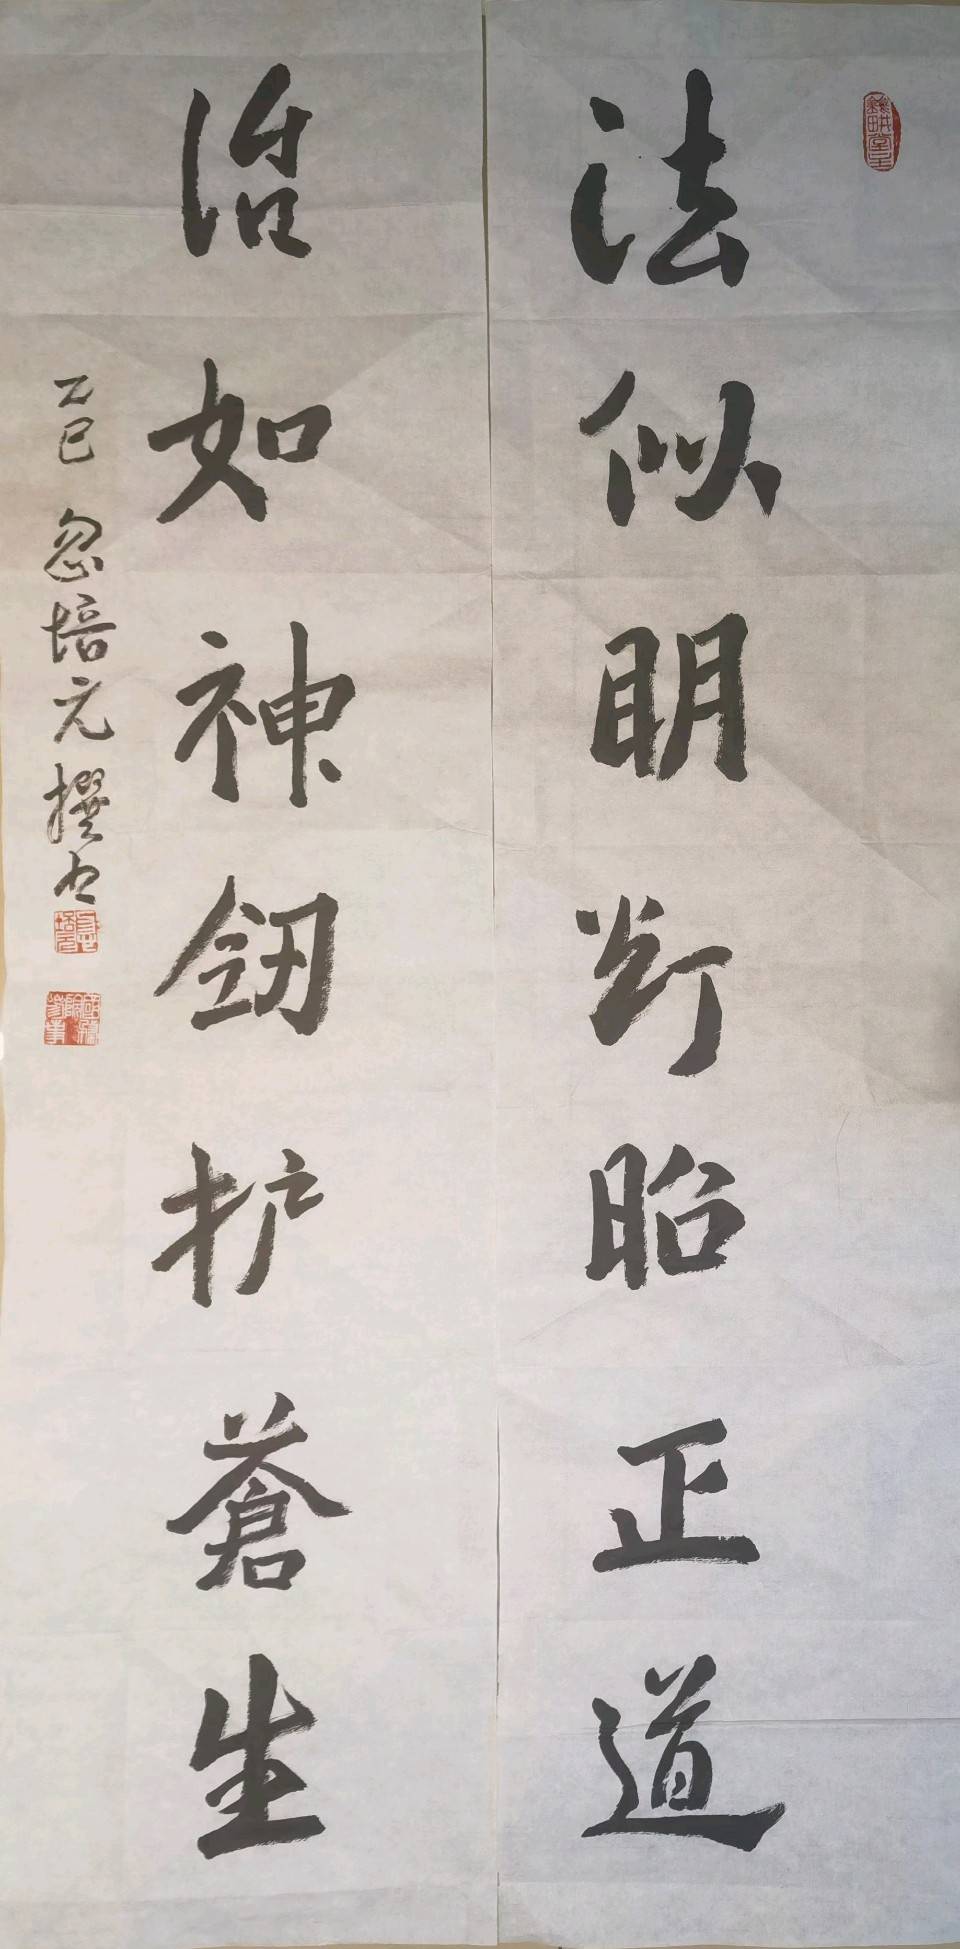 法似明灯昭正道
治如神釼护蒼生
乙巳 忽培元撰书